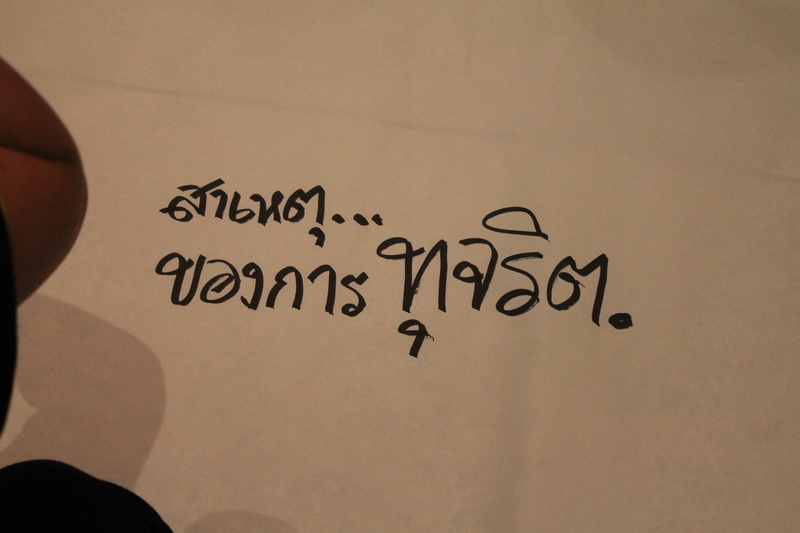 สาเหตุ...
ของการ ทุจริต.